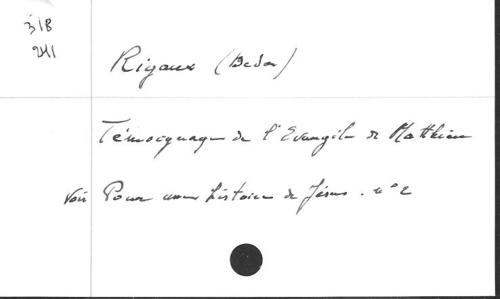 318
241
Rigaux (Beda)
Témoignage de l'Evangile de Matthieu
voir Pour une histoire de Jésus. n° 2